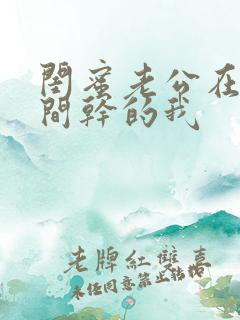 閨蜜老公在
間幹的我
老牌紅雙喜
未經同意禁止轉載